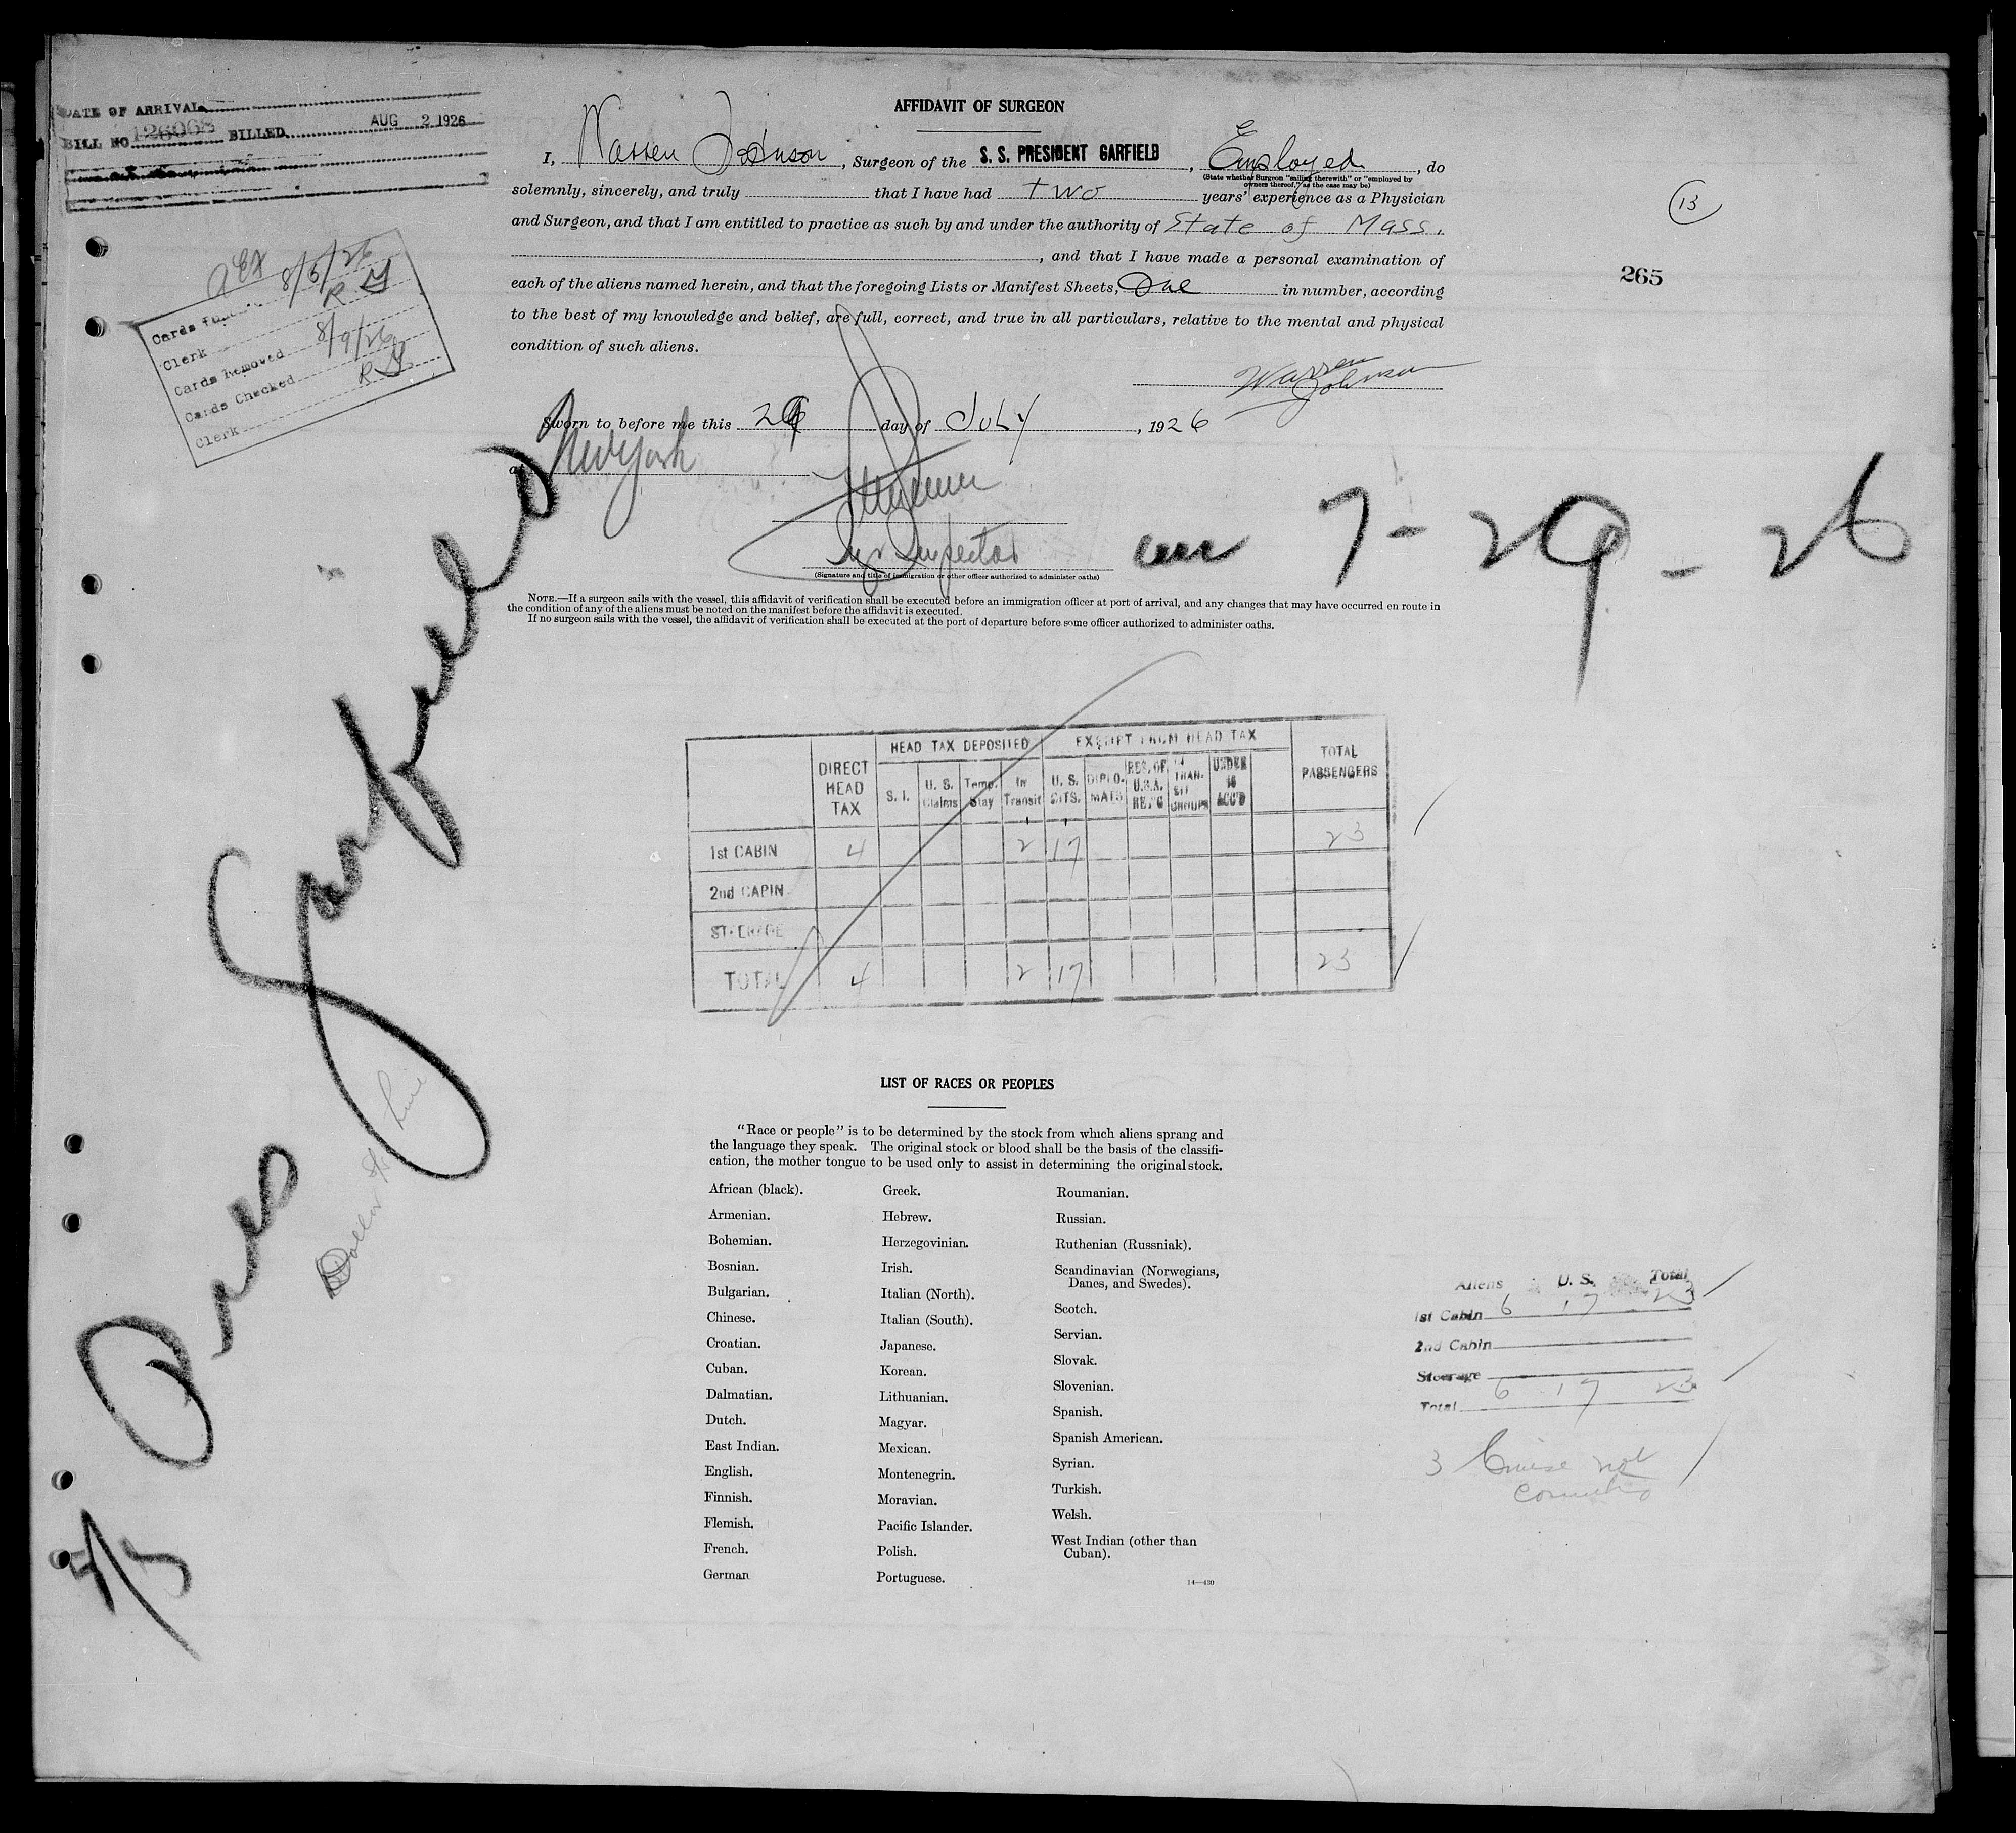 DATE OF ARRIVAL
BILL NO. 126968 BILLED AUG 2 1926
AFFIDAVIT OF SURGEON
I, Warren Johnson, Surgeon of the S. S. PRESIDENT GARFIELD, Employed, do
(State whether Surgeon "sailing therewith" or "employed by
owners thereof," as the case may be)
solemnly, sincerely, and truly that I have had two years' experience as a Physician
and Surgeon, and that I am entitled to practice as such by and under the authority of State of Mass.
, and that I have made a personal examination of
each of the aliens named herein, and that the foregoing Lists or Manifest Sheets, One in number, according
to the best of my knowledge and belief, are full, correct, and true in all particulars, relative to the mental and physical
condition of such aliens.
Warren Johnson
Sworn to before me this 29 day of July, 1926
at New York
Inspector
(Signature and title of immigration or other officer authorized to administer oaths)
13
265
8/5/26
Clerk
Cards Removed 8/9/26
Cards Checked
Clerk
7-29-26
NOTE.—If a surgeon sails with the vessel, this affidavit of verification shall be executed before an immigration officer at port of arrival, and any changes that may have occurred en route in
the condition of any of the aliens must be noted on the manifest before the affidavit is executed.
If no surgeon sails with the vessel, the affidavit of verification shall be executed at the port of departure before some officer authorized to administer oaths.
Pres Garfield
Dollar Line
HEAD TAX DEPOSITED EXEMPT FROM HEAD TAX
DIRECT HEAD TAX S. I. U. S. Claims Temp. Stay In Transit U. S. CITS. DIPLO-MATS RES. OF U.S.A. RET'G IN TRAN-SIT GROUPS UNDER 16 ACC'D TOTAL PASSENGERS
1st CABIN 4 2 17 23
2nd CABIN
STEERAGE
TOTAL 4 2 17 23
LIST OF RACES OR PEOPLES
"Race or people" is to be determined by the stock from which aliens sprang and
the language they speak. The original stock or blood shall be the basis of the classifi-
cation, the mother tongue to be used only to assist in determining the original stock.
African (black).
Armenian.
Bohemian.
Bosnian.
Bulgarian.
Chinese.
Croatian.
Cuban.
Dalmatian.
Dutch.
East Indian.
English.
Finnish.
Flemish.
French.
German
Greek.
Hebrew.
Herzegovinian.
Irish.
Italian (North).
Italian (South).
Japanese.
Korean.
Lithuanian.
Magyar.
Mexican.
Montenegrin.
Moravian.
Pacific Islander.
Polish.
Portuguese.
Roumanian.
Russian.
Ruthenian (Russniak).
Scandinavian (Norwegians,
Danes, and Swedes).
Scotch.
Servian.
Slovak.
Slovenian.
Spanish.
Spanish American.
Syrian.
Turkish.
Welsh.
West Indian (other than
Cuban).
14—430
Aliens U. S. Total
1st Cabin 6 17 23
2nd Cabin
Steerage
Total 6 17 23
3 Cruise not